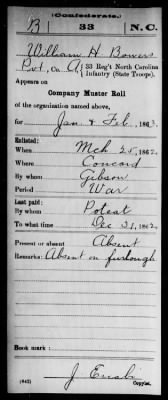 (Confederate.)
B 33 N.C.
William H Bowers
Pvt, Co. A, 33 Reg't North Carolina
Infantry (State Troops).
Appears on
Company Muster Roll
of the organization named above,
for Jan & Feb, 1863
Enlisted:
When Mch 25, 1862
Where Concord
By whom Gibson
Period War
Last paid:
By whom Poteat
To what time Dec 31, 1862
Present or absent Absent
Remarks: Absent on furlough
Book mark:
(642) Copyist.